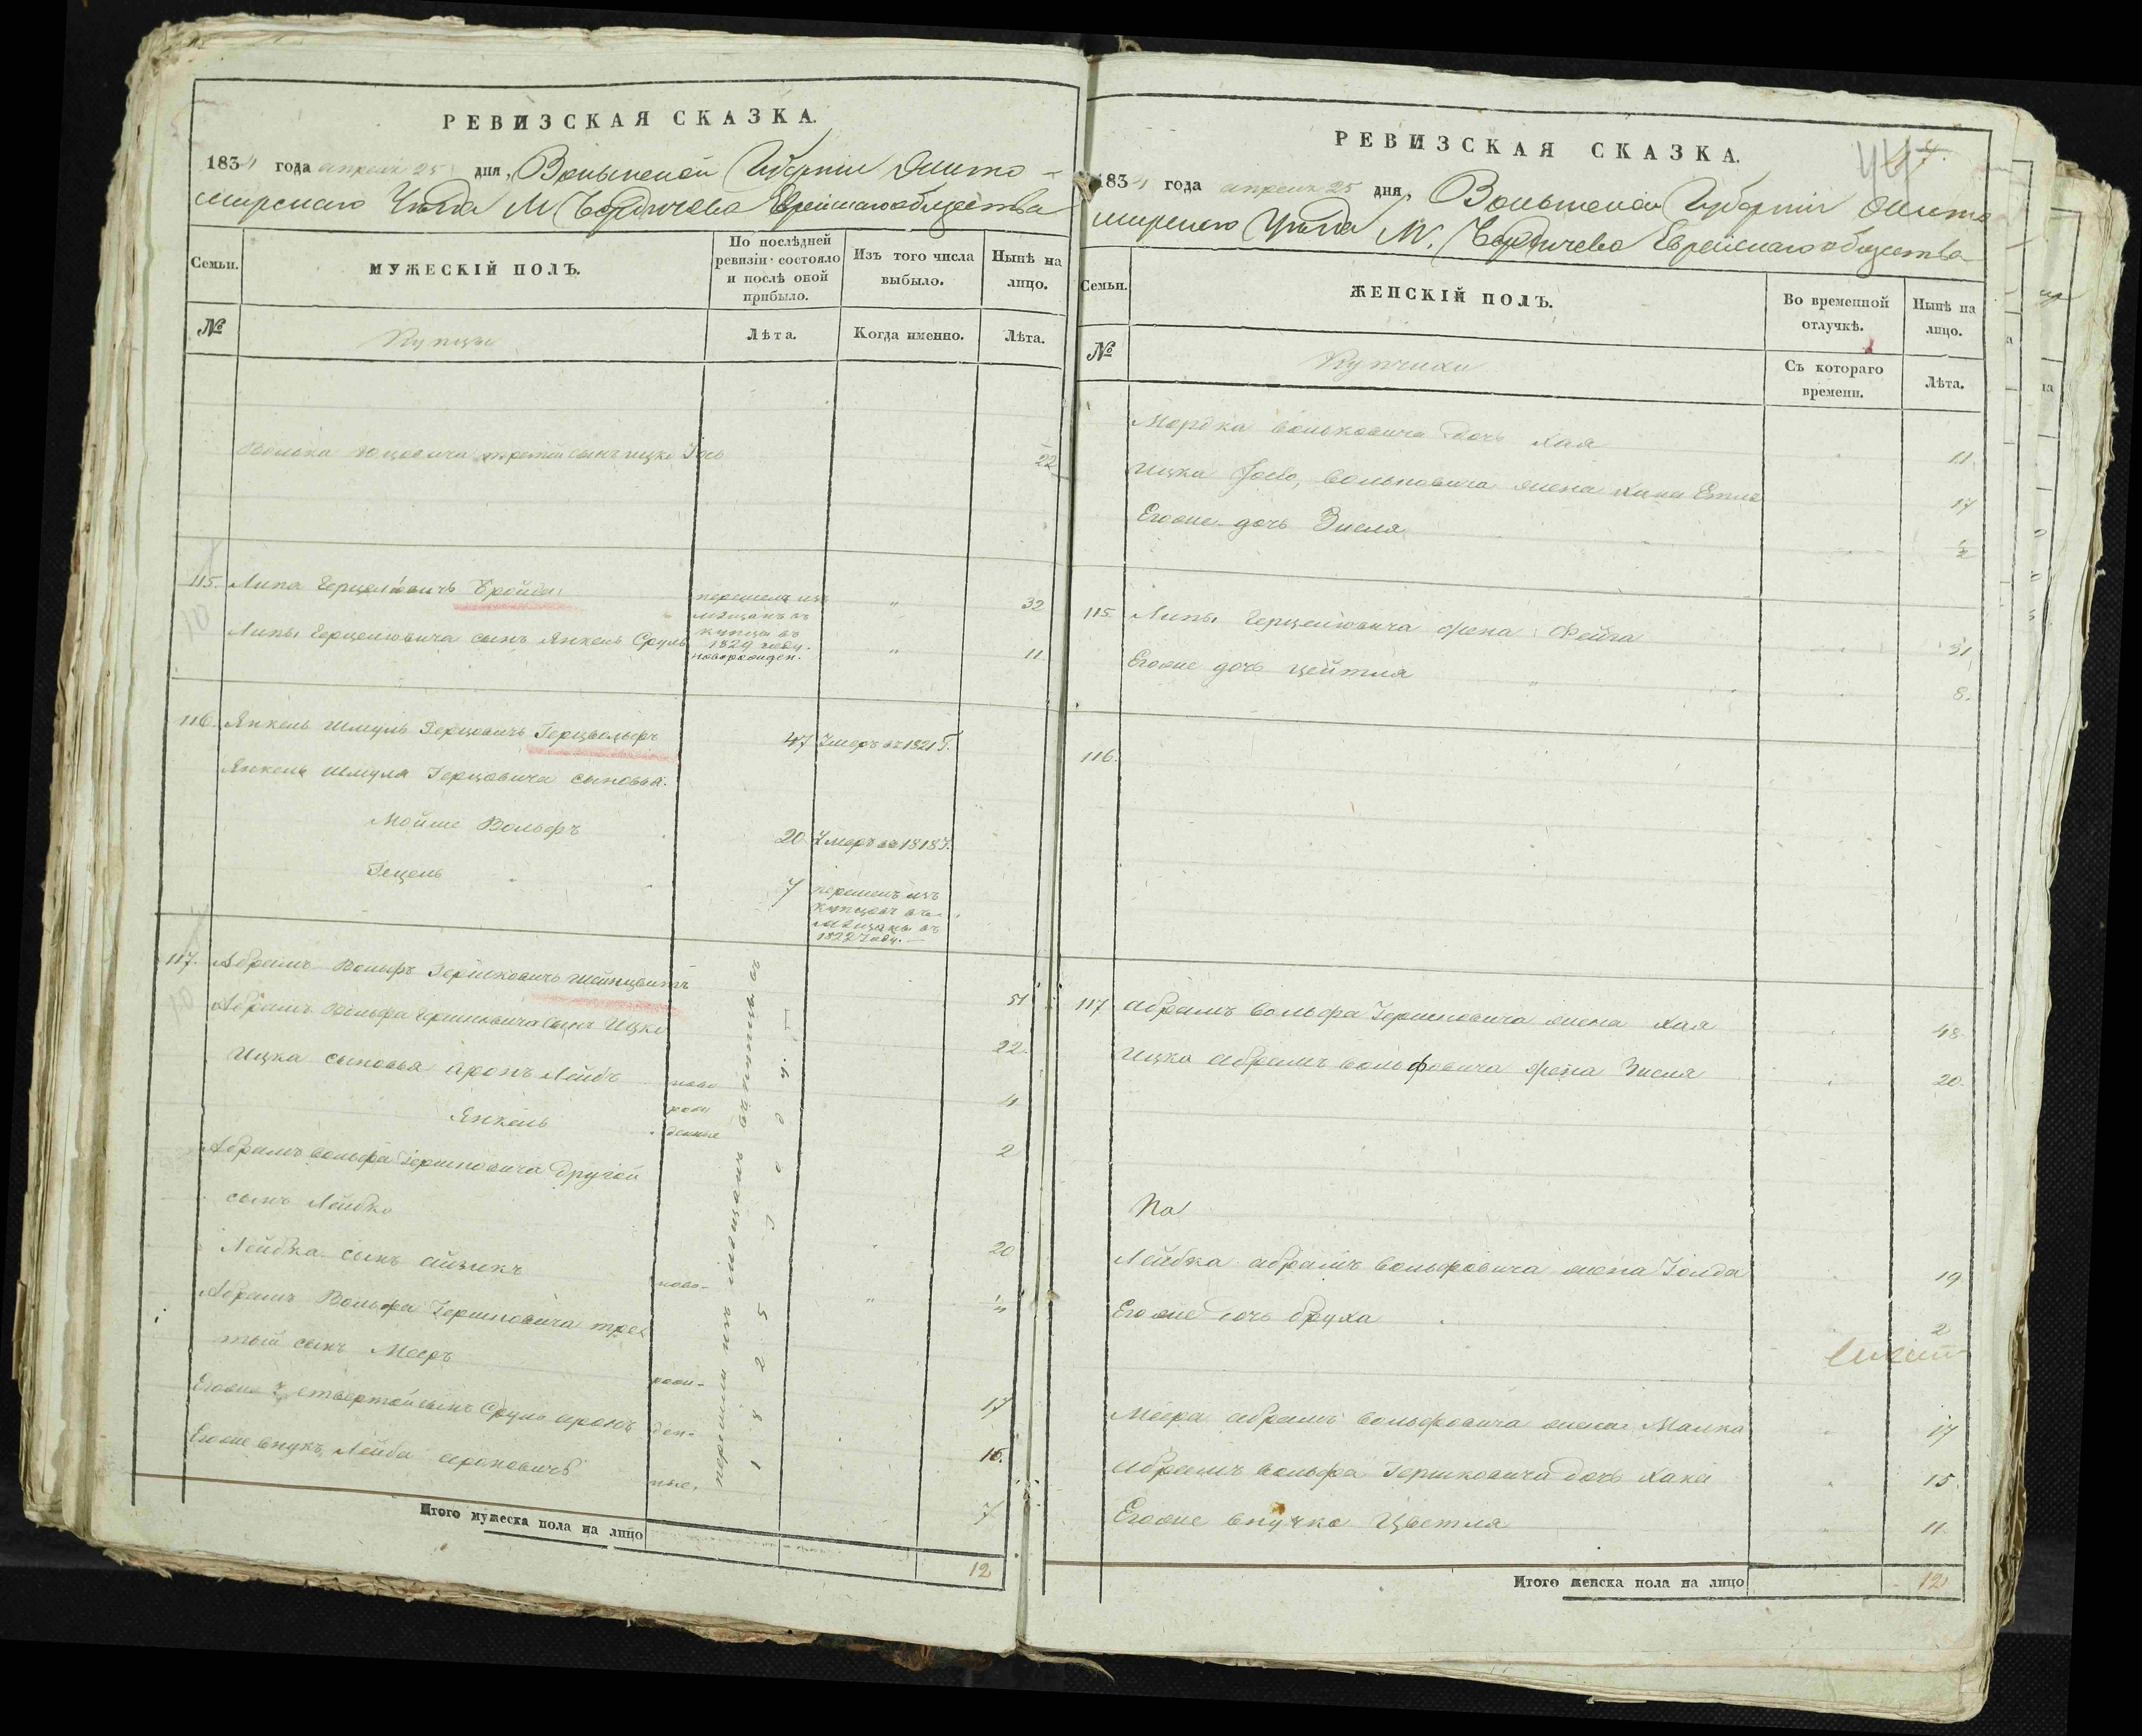 РЕВИЗСКАЯ СКАЗКА.
1834 года апреля 25 дня, Волынской Губерніи Жито-
мирскаго Уѣзда М Бердичева Еврейскаго общества
Семьи.
МУЖЕСКІЙ ПОЛЪ.
По послѣдней ревизіи состояло и послѣ оной прибыло.
Изъ того числа выбыло.
Нынѣ на лицо.
№
Купцы
Лѣта.
Когда именно.
Лѣта.
Волька Іоцовича третій сынъ Ицко Іось 22
115. Липа Герцеліовичъ Бройда перешелъ изъ мѣщанъ въ купцы въ 1829 году. " 32
Липы Герцеліовича сынъ Янкель Сруль новорожден. " 11
116. Янкель Шмуль Герцовичъ Герцвольфъ 47 Умеръ въ 1821 Г.
Янкель Шмуля Герцовича сыновья.
Мойше Вольфъ 20 Умеръ въ 1818 Г.
Гецель 7 перешелъ изъ купцовъ въ мѣщаны въ 1822 году.
117. Абрамъ Вольфъ Гершковичъ Шейнцвитъ 51
Абрамъ Вольфа Гершковича сынъ Ицко 22.
Ицка сыновья Аронъ Лейбъ ново 4
Янкель рож денные 2
Абрамъ Вольфа Гершковича другой
сынъ Лейбко 20
Лейбка сынъ Айзикъ ново- " ½
Абрамъ Вольфа Гершковича тре
тый сынъ Мееръ рож- 17
Егоже четвертой сынъ Сруль Аронъ ден- 16.
Егоже внукъ Лейба Ароновичъ ные. 7
перешли изъ мещанъ въ купцы въ
1825 Году.
Итого мужеска пола на лицо 12
РЕВИЗСКАЯ СКАЗКА.
47.
44
1834 года апреля 25 дня, Волынской Губерніи Жито
мирскаго Уѣзда М. Бердичева Еврейскаго общества
Семьи.
ЖЕНСКІЙ ПОЛЪ.
Во временной отлучкѣ.
Нынѣ на лицо.
№
Купчихи
Съ котораго времени.
Лѣта.
Мордка Вольковича дочь Хая 11
Ицка Іось, Вольковича жена Хана Етля 17
Егоже дочь Зисля ½
115 Липы Герцеліовича жена Фейга 31
Егоже дочь Цейтля " 8.
116.
117 Абрамъ Вольфа Гершковича жена Хая 48
Ицка Абрамъ Вольфовича жена Зисля 20.
На
Лейбка Абрамъ Вольфовича жена Голда 19
Егоже дочь Бруха 2
Меера Абрамъ Вольфовича жена Малка 17
Абрамъ Вольфа Гершковича дочь Хана 15.
Егоже внучка Цветля 11.
Итого женска пола на лицо 12